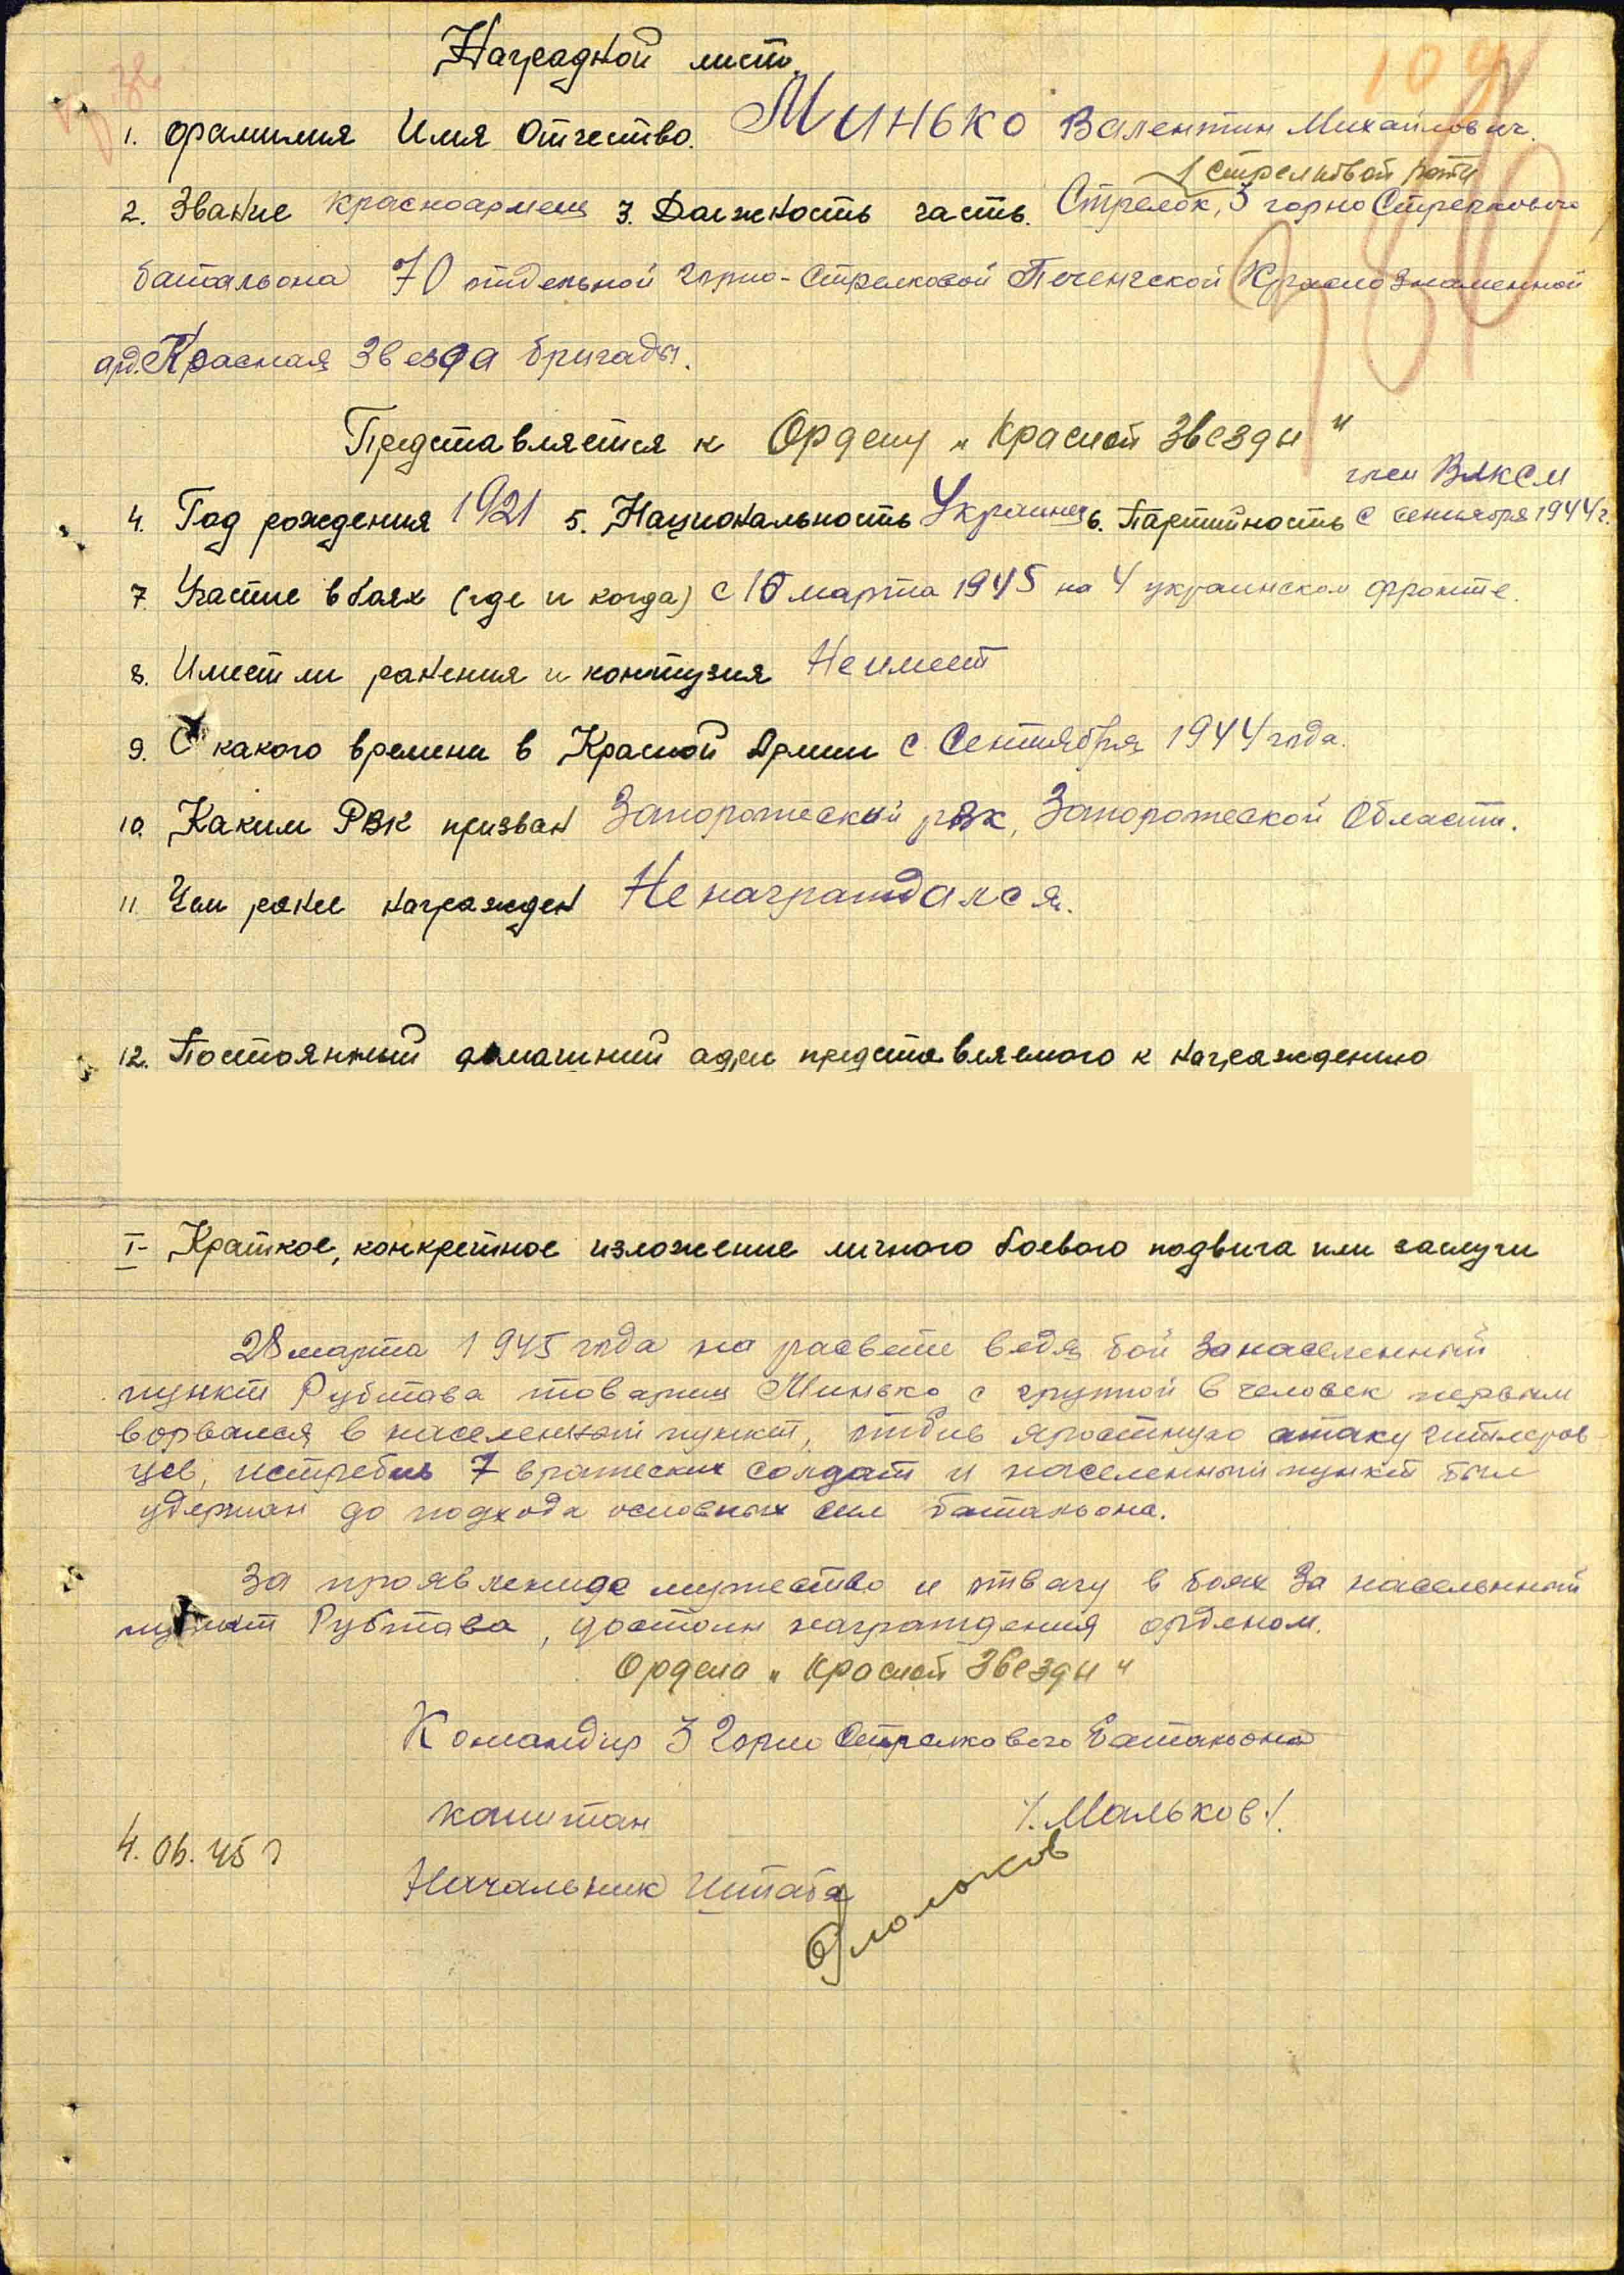 Наградной лист
109
1. Фамилия Имя Отчество. Минько Валентин Михайлович.
1 стрелковой роты
2. Звание красноармеец 3. Должность часть. Стрелок, 3 горно Стрелкового
батальона 70 отдельной горно-стрелковой Печенгской Краснознаменной
орд. Красная Звезда бригады.
Представляется к Ордену „Красной Звезды"
член ВЛКСМ
4. Год рождения 1921 5. Национальность Украинец 6. Партийность с сентября 1944 г.
7. Участие в боях (где и когда) с 10 марта 1945 на 4 украинском фронте.
8. Имеет ли ранения и контузия Не имеет
9. С какого времени в Красной Армии с Сентября 1944 года.
10. Каким РВК призван Запорожеский рвк, Запорожеской Области.
11 Чем ранее награжден Не награждался.
12. Постоянный домашний адрес представляемого к награждению
I- Краткое, конкретное изложение личного боевого подвига или заслуги
28 марта 1945 года на расвете ведя бой за населенный
пункт Рубтава товарищ Минько с группой 6 человек первым
ворвался в населенный пункт, отбив яростную атаку гитлеров-
цев, истребив 7 вражеских солдат и населенный пункт был
удержан до подхода основных сил батальона.
За проявленное мужество и отвагу в боях за населенный
пункт Рубтава, достоин награждения орденом.
Ордена „Красной Звезды"
Командир 3 Горно Стрелкового Батальона
капитан /.Мальков./
4.06.45 г
Начальник Штаба